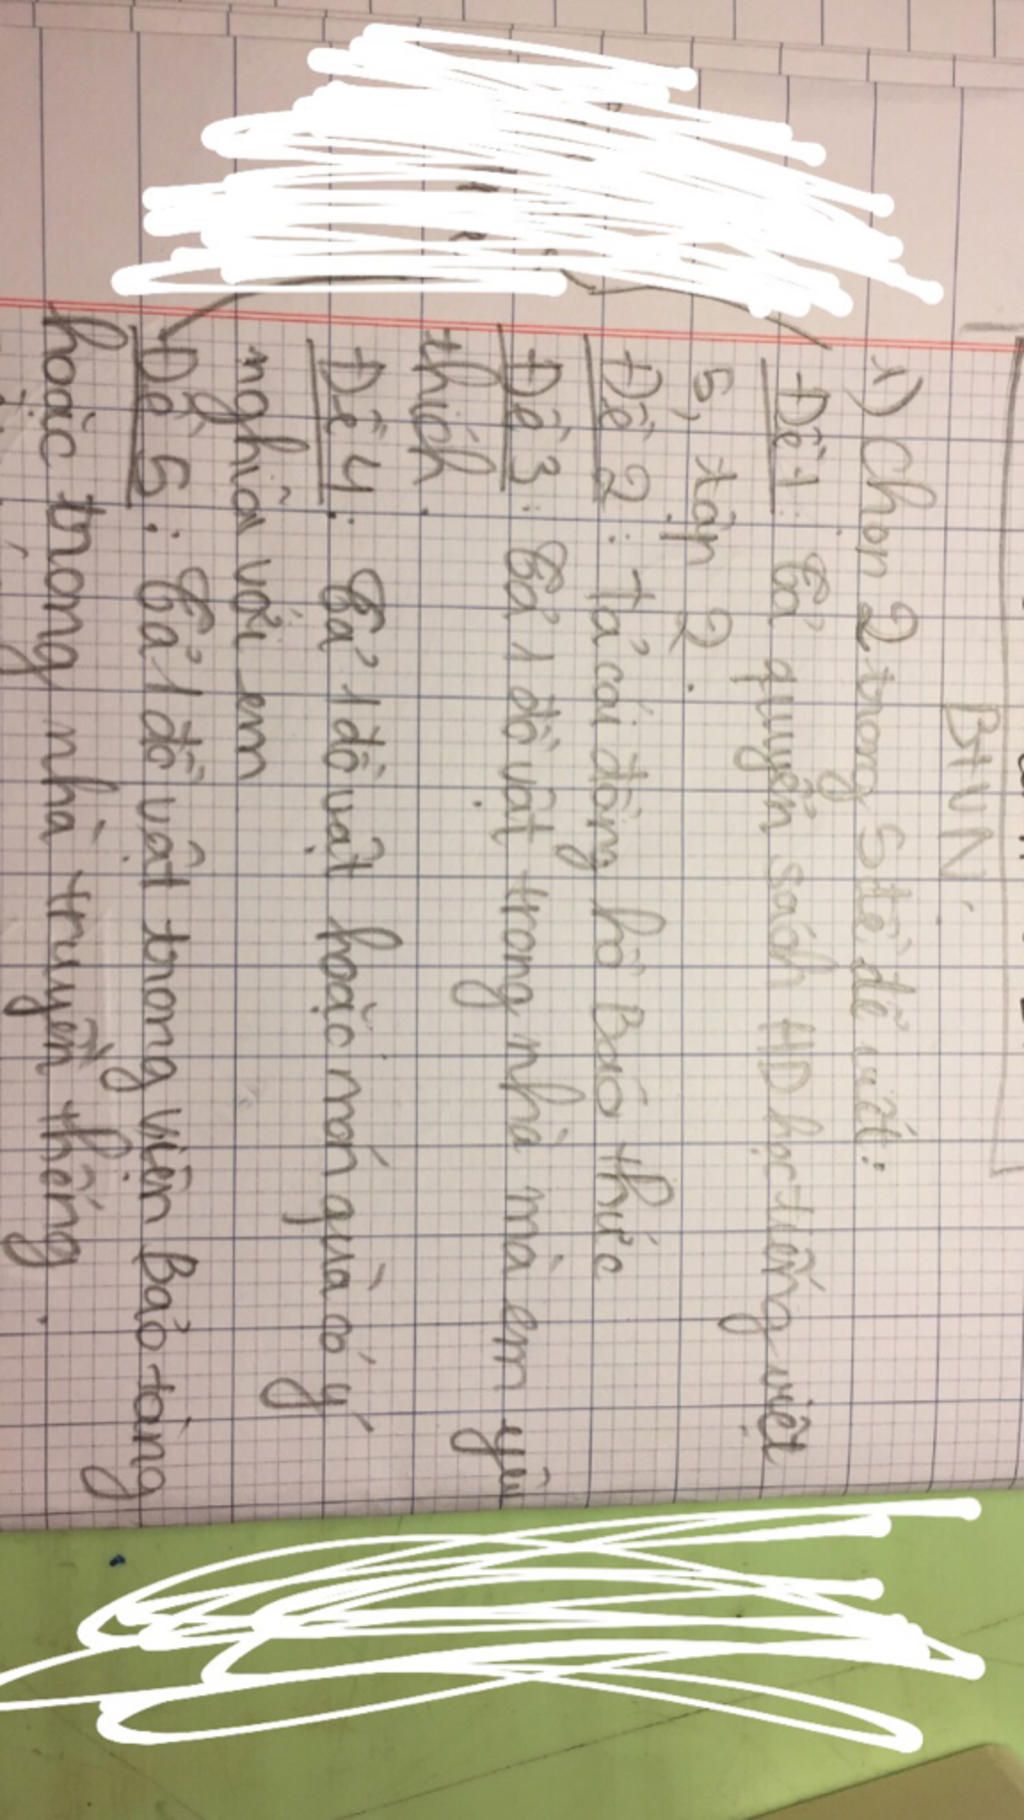 BTVN:
1) Chọn 2 trong 5 đề để viết:
Đề 1: Tả quyển sách HD học tiếng việt
5, tập 2.
Đề 2: Tả cái đồng hồ Báo thức
Đề 3: Tả 1 đồ vật trong nhà mà em yêu
thích.
Đề 4: Tả 1 đồ vật hoặc món quà có ý
nghĩa với em
Đề 5: Tả 1 đồ vật trong viện Bảo tàng
hoặc trong nhà truyền thống.